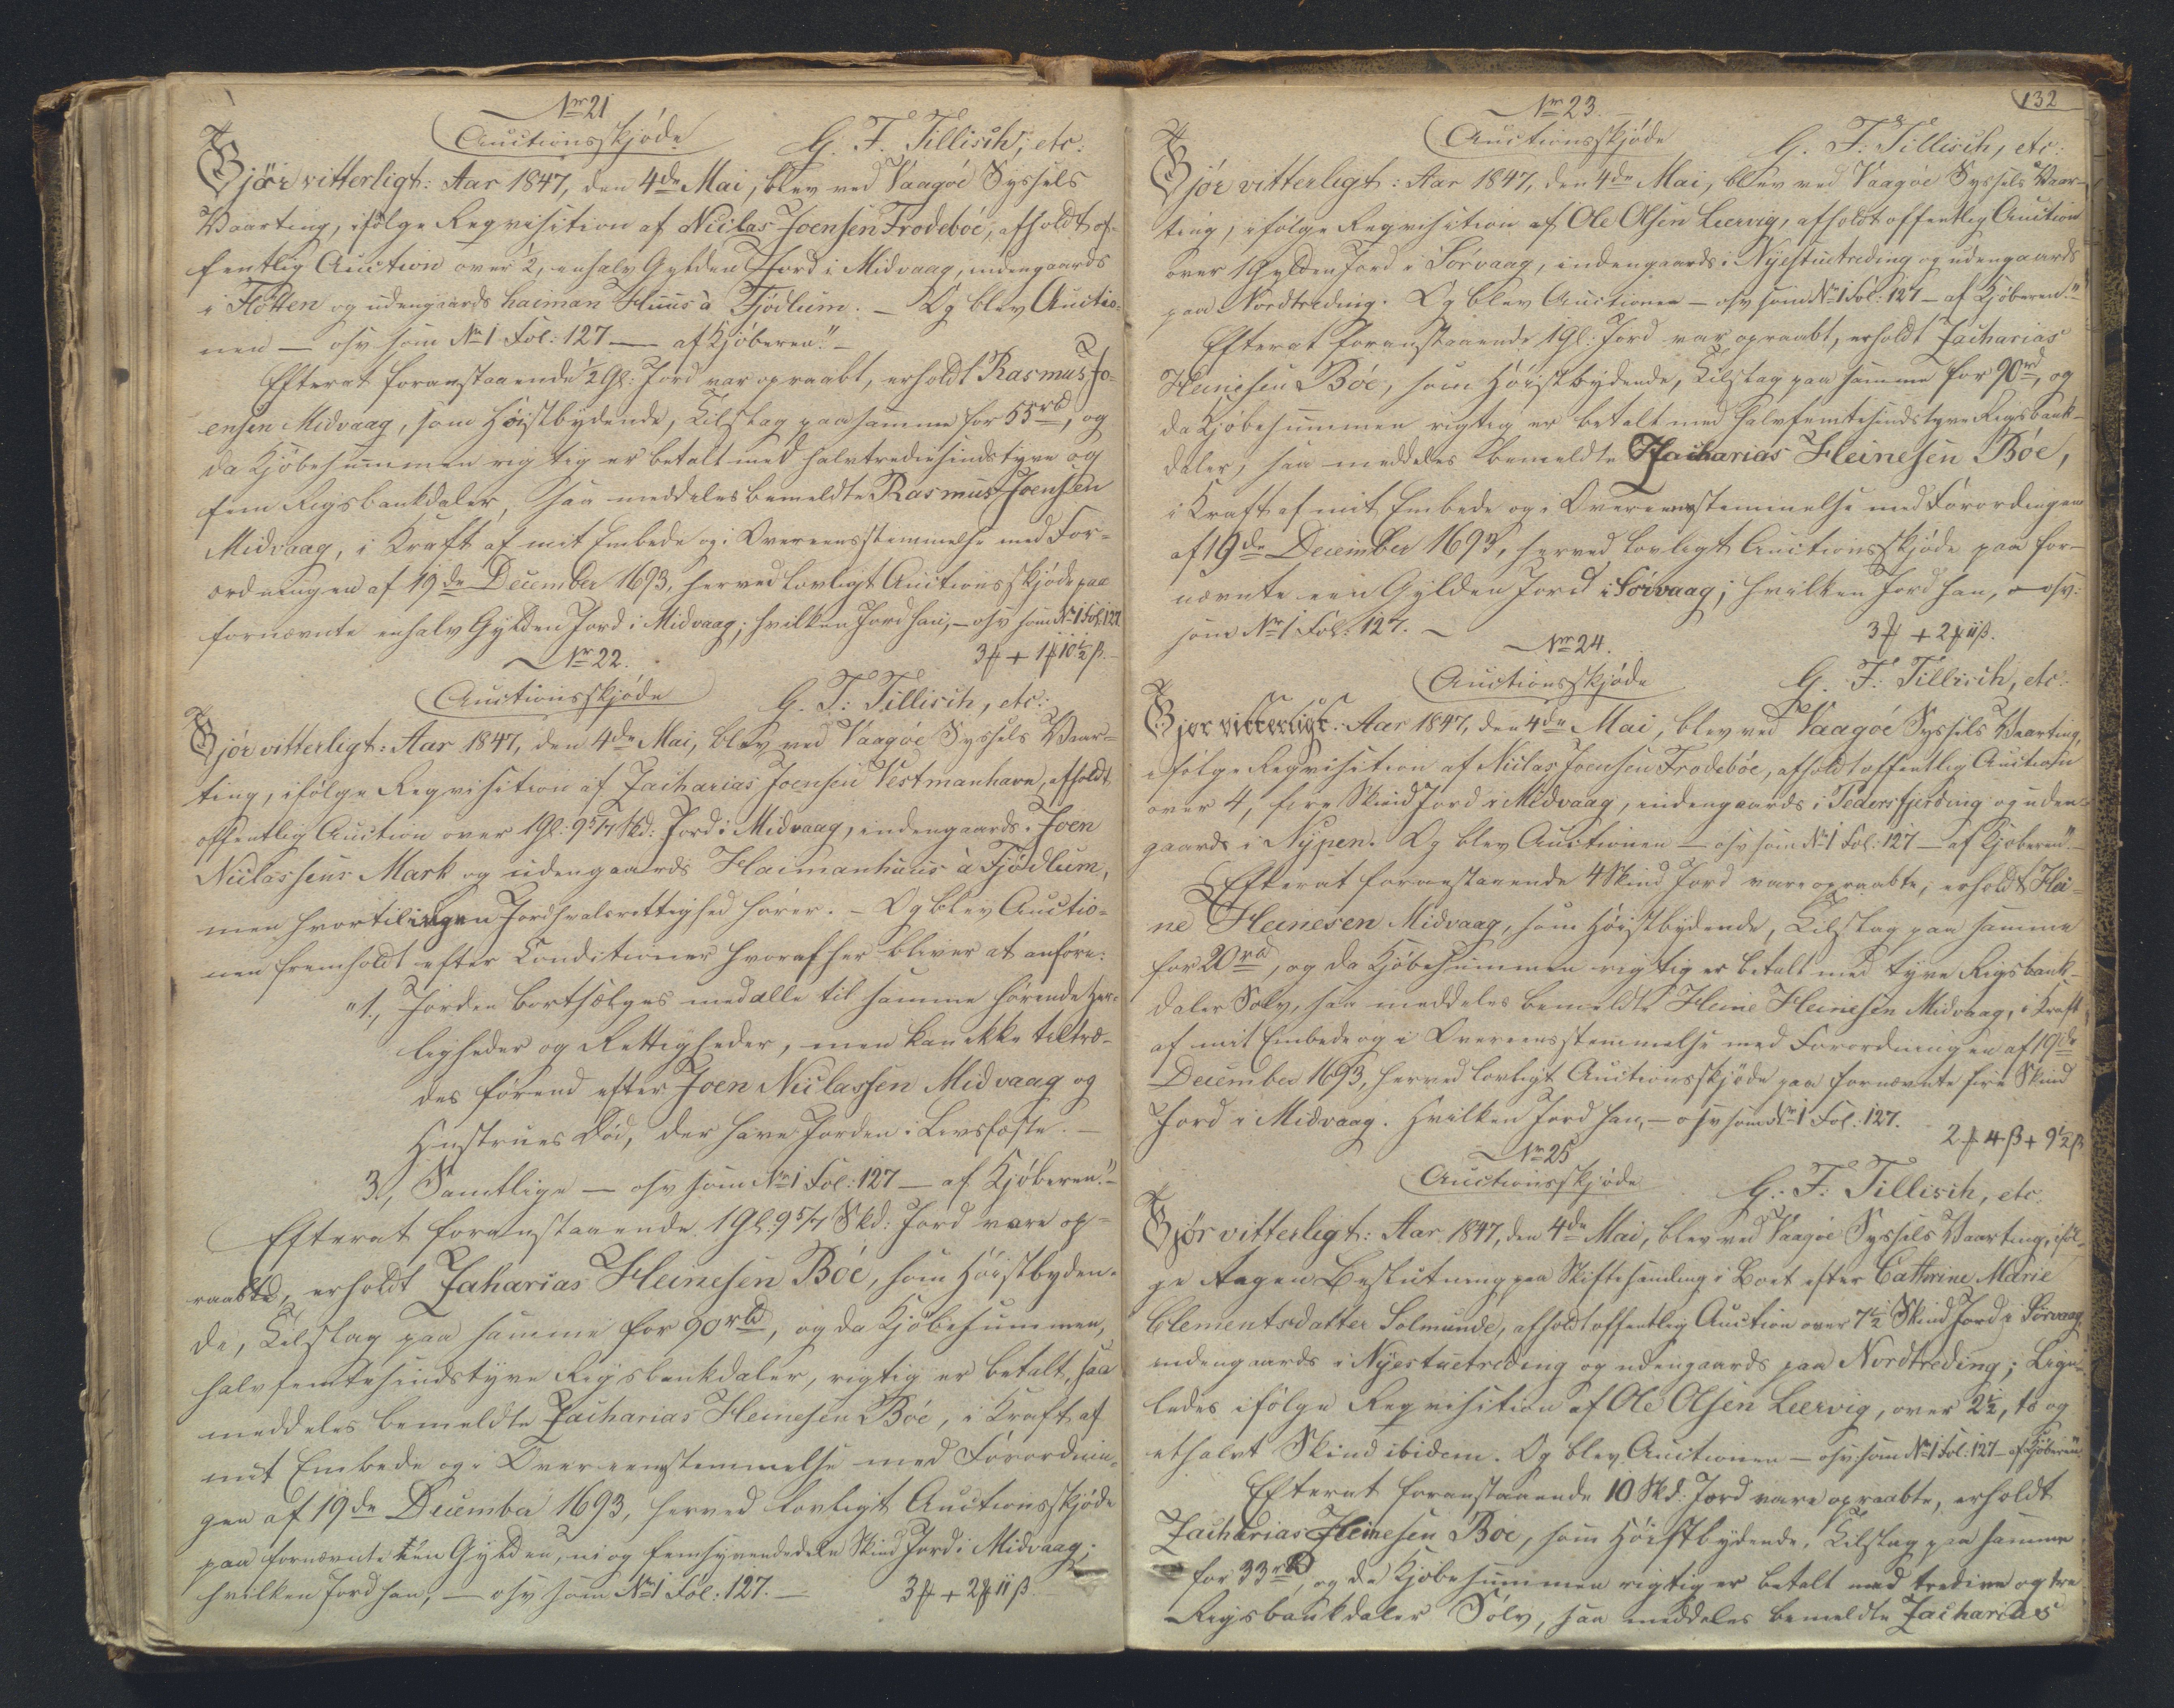 No 21
Auctionsskjøde G. F. Tillisch, etc:
Gjør vitterligt: Aar 1847, den 4de Mai, blev ved Vaagøe Syssels
Vaarting, ifølge Reqvisition af Niclas Joensen Frodebøe, afholdt of-
fentlig Auction over ½, enhalv Gylden Jord i Midvaag, indengaards
i Flötten og udengaards haiman Huus à Fjødlum. – Og blev Auctio-
nen — osv som No 1 Fol: 127 — af Kjøberen." –
Efterat foranstaaende ½ Gl: Jord var opraabt, erholdt Rasmus Jo-
ensen Midvaag, som Høistbydende, Tilslag paa samme for 55 rbd, og
da Kjøbesummen rigtig er betalt med halvtrediesindstyve og
fem Rigsbankdaler, saa meddeles bemeldte Rasmus Joensen
Midvaag, i Kraft af mit Embede og i Overeensstemmelse med For-
ordningen af 19de December 1693, herved lovligt Auctionsskjøde paa
fornævnte enhalv Gylden Jord i Midvaag; hvilken Jord han, – osv som No 1 Fol: 127
3 ƒ + 1 ƒ 10½ ß. –
No 22.
Auctionsskjøde G. F: Tillisch, etc:
Gjør vitterligt: Aar 1847, den 4de Mai, blev ved Vaagøe Syssels Vaar-
ting, ifølge Reqvisition af Zacharias Joensen Vestmanhavn, afholdt
offentlig Auction over 1 Gl: 9 5/7 Skd: Jord i Midvaag, indengaards i Joen
Niclassens Mark og udengaards Haimanhuus à Fjødlum,
men hvortil ingen Jordhvalsrettighed hører. – Og blev Auctio-
nen fremholdt efter Conditioner hvoraf her bliver at anføre:
"1., Jorden bortsælges med alle til samme hørende Her-
ligheder og Rettigheder, men kan ikke tiltræ-
des førend efter Joen Niclassen Midvaag og
Hustrues Død, der have Jorden i Livsfæste. –
3., Samtlige — osv som No 1 Fol: 127 — af Kjøberen." –
Efterat foranstaaende 1 Gl: 9 5/7 Skd: Jord vare op-
raabte, erholdt Zaharias Heinesen Bøe, som Høistbyden-
de, Tilslag paa samme for 90 rbd, og da Kjøbesummen,
halvfemtesindstyve Rigsbankdaler, rigtig er betalt, saa
meddeles bemeldte Zacharias Heinesen Bøe, i Kraft af
mit Embede og i Overeensstemmelse med Forordnin-
gen af 19de December 1693, herved lovligt Auctionsskjøde
paa fornævnte een Gylden, ni og femsyvendedele Skind Jord i Midvaag;
hvilken Jord han, — osv som No 1 Fol: 127. — 3 ƒ + 2 ƒ 11 ß.
132
No 23.
Auctionsskjøde G. F: Tillisch, etc:
Gjør vitterligt: Aar 1847, den 4de Mai, blev ved Vaagøe Syssels Vaar-
ting, ifølge Reqvisition af Ole Olsen Leervig, afholdt offentlig Auction
over 1 Gylden Jord i Sørvaag, indengaards i Nyestuetreding og udengaards
paa Nordtreding. Og blev Auctionen — osv som No 1 Fol: 127 — af Kjøberen." –
Efterat foranstaaende 1 Gl: Jord var opraabt, erholdt Zacharias
Heinesen Bøe, som Høistbydende, Tilslag paa samme for 90 rd, og
da Kjøbesummen rigtig er betalt med halvfemtesindstyve Rigsbank-
daler, saa meddeles bemeldte Zacharias Heinesen Bøe,
i Kraft af mit Embede og i Overeensstemmelse med Forordningen
af 19de December 1693, herved lovligt Auctionsskjøde paa for-
nævnte een Gylden Jord i Sørvaag; hvilken Jord han, – osv:
som No 1 Fol: 127. – 3 ƒ + 2 ƒ 11 ß.
No 24.
Auctionsskjøde G. F: Tillisch, etc:
Gjør vitterligt: Aar 1847, den 4de Mai, blev ved Vaagøe Syssels Vaarting,
ifølge Reqvisition af Niclas Joensen Frodebøe, afholdt offentlig Auction
over 4, fire Skind Jord i Midvaag, indengaards i Pedersfjerding og uden-
gaards i Nypen. Og blev Auctionen — osv som No 1 Fol: 127 — af Kjøberen." –
Efterat foranstaaende 4 Skind Jord vare opraabte, erholdt Hei-
ne Heinesen Midvaag, som Høistbydende, Tilslag paa samme
for 20 rbd, og da Kjøbesummen rigtig er betalt med tyve Rigsbank-
daler Sølv, saa meddeles bemeldte Heine Heinesen Midvaag, i Kraft
af mit Embede og i Overeensstemmelse med Forordningen af 19de
December 1693, herved lovligt Auctionsskjøde paa fornævnte fire Skind
Jord i Midvaag. Hvilken Jord han, – osv som No 1 Fol: 127.
2 ƒ 4 ß + 9½ ß
No 25
Auctionsskjøde G. F: Tillisch, etc:
Gjør vitterligt: Aar 1847, den 4de Mai, blev ved Vaagøe Syssels Vaarting, iføl-
ge tagen Beslutning paa Skiftesamling i Boet efter Cathrine Marie
Clementsdatter Solmunde, afholdt offentlig Auction over 7½ Skind Jord i Sørvaag
indengaards i Nyestuetreding og udengaards paa Nordtreding; Lige-
ledes ifølge Reqvisition af Ole Olsen Leervig, over 2½, to og
ethalvt Skind ibidem. Og blev Auctionen — osv: som No 1 Fol: 127 — af Kjøberen."
Efterat foranstaaende 10 Skd: Jord vare opraabte, erholdt
Zacharias Heinesen Bøe, som Høistbydende, Tilslag paa samme
for 33 rbd, og da Kjøbesummen rigtig er betalt med tredive og tre
Rigsbankdaler Sølv, saa meddeles bemeldte Zacharias